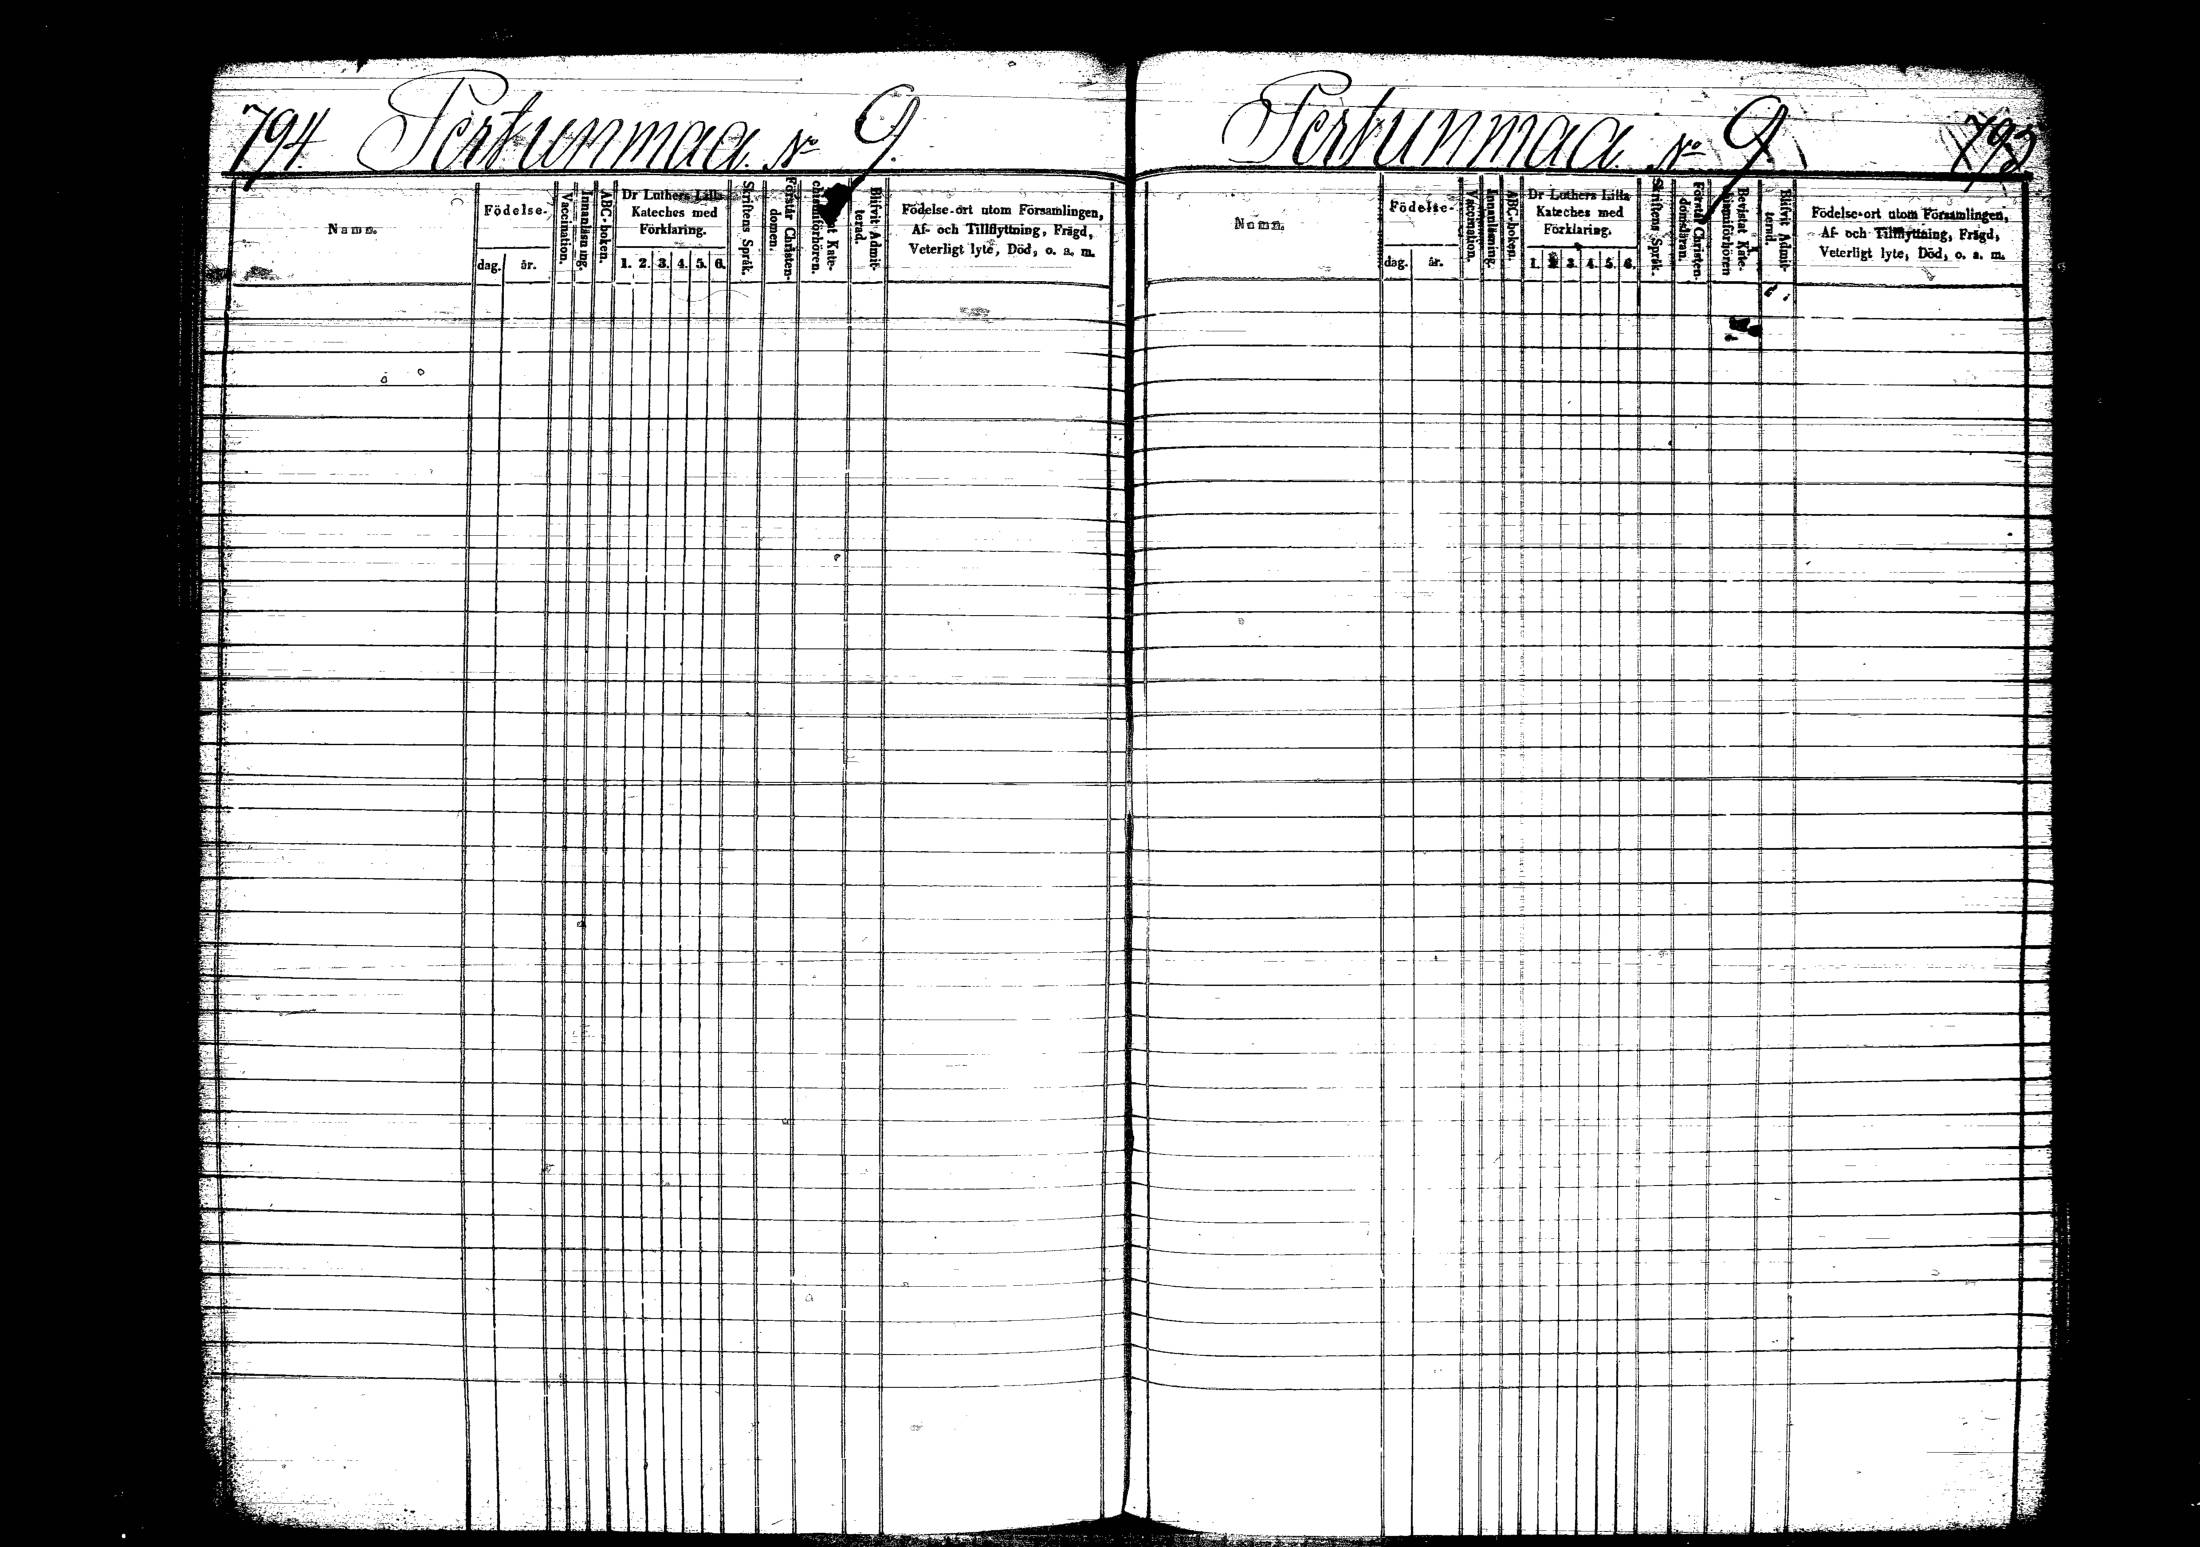 794. Pertunmaa № 9.
Namn.
Födelse-
dag.
år.
Vaccination.
Innanläsning.
ABC-boken.
Dr Luthers Lilla
Kateches med
Förklaring.
1. 2. 3. 4. 5. 6.
Skriftens Språk.
Förstår Christen-
domen.
Kate-
Blifvit Admit-
terad.
Födelse-ort utom Församlingen,
Af- och Tillflyttning, Frägd,
Veterligt lyte, Död, o. a. m.
Pertunmaa № 9
Namn.
Födelse-
dag.
år.
Vaccination.
Innanläsning.
ABC-boken.
Dr Luthers Lilla
Kateches med
Förklaring.
1. 2. 3. 4. 5. 6.
Skriftens Språk.
Förstår Christen-
domsläran.
Bevistat Kate-
chismiförhören
Blifvit Admit-
terad.
Födelse-ort utom Församlingen,
Af- och Tillflyttning, Frägd,
Veterligt lyte, Död, o. a. m.